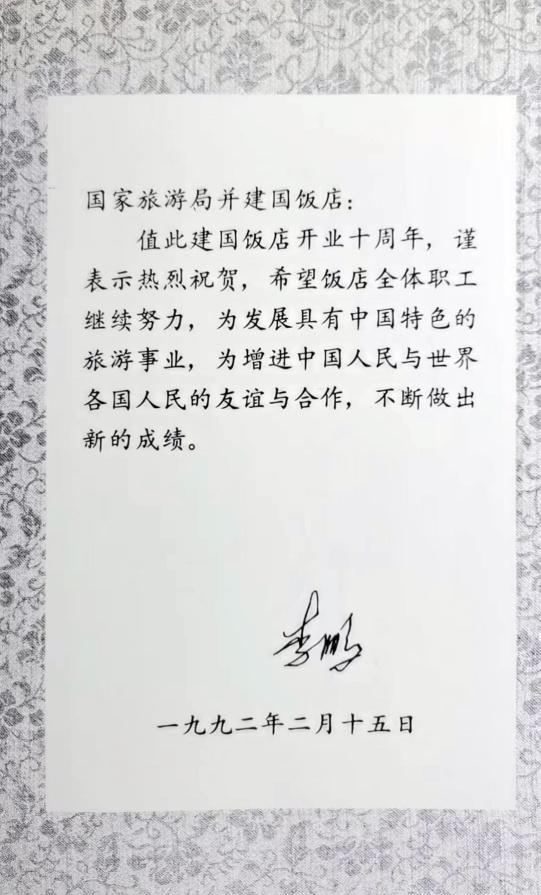 国家旅游局并建国饭店：
值此建国饭店开业十周年，谨
表示热烈祝贺，希望饭店全体职工
继续努力，为发展具有中国特色的
旅游事业，为增进中国人民与世界
各国人民的友谊与合作，不断做出
新的成绩。
李鹏
一九九二年二月十五日